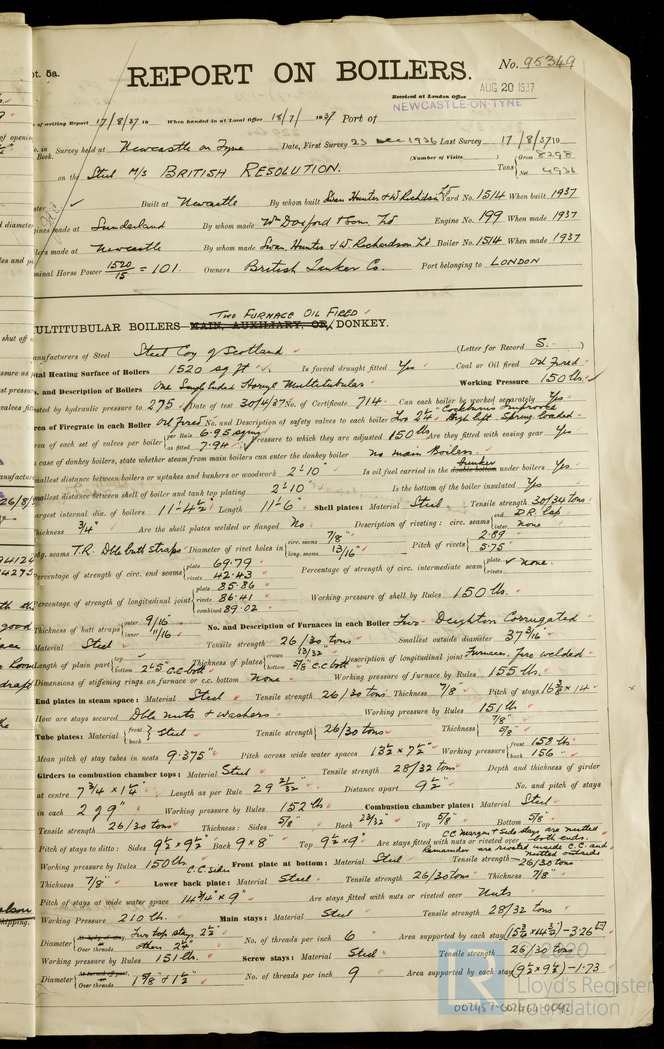 pt. 5a.
REPORT ON BOILERS.
No. 95349
AUG 20 1937
Received at London Office
NEWCASTLE-ON-TYNE
of writing Report 17/8/37 19 When handed in at Local Office 18/7/ 1937 Port of
No. in Survey held at Newcastle on Tyne Date, First Survey 23 Dec 1936 Last Survey 17/8/37 19
Book.
(Number of Visits )
on the Steel M/S BRITISH RESOLUTION. Tons { Gross 8298 Net 4936
Built at Newcastle By whom built Swan Hunter & W Richdson Ld Yard No. 1514 When built 1937
ines made at Sunderland By whom made Wm Doxford & Sons Ld Engine No. 199 When made 1937
lers made at Newcastle By whom made Swan, Hunter & W Richardson Ld Boiler No. 1514 When made 1937
minal Horse Power 1520/15 = 101. Owners British Tanker Co. Port belonging to LONDON
TWO FURNACE OIL FIRED
MULTITUBULAR BOILERS MAIN, AUXILIARY, OR DONKEY.
anufacturers of Steel Steel Coy of Scotland (Letter for Record S. )
tal Heating Surface of Boilers 1520 sq ft Is forced draught fitted Yes Coal or Oil fired Oil Fired
o. and Description of Boilers One Single Ended Horizl Multitubular Working Pressure 150 lbs.
ested by hydraulic pressure to 275 Date of test 30/4/37 No. of Certificate 714 Can each boiler be worked separately Yes
rea of Firegrate in each Boiler Oil Fired No. and Description of safety valves to each boiler Two 2½" Cockburns Improved High Lift Spring loaded
rea of each set of valves per boiler { per Rule 6.95 sq ins as fitted 7.94 Pressure to which they are adjusted 150 lbs Are they fitted with easing gear Yes
n case of donkey boilers, state whether steam from main boilers can enter the donkey boiler No main boilers.
mallest distance between boilers or uptakes and bunkers or woodwork 2'10" Is oil fuel carried in the double bottom bunker under boilers Yes
mallest distance between shell of boiler and tank top plating 2'10" Is the bottom of the boiler insulated Yes
argest internal dia. of boilers 11'-4½" Length 11'-6" Shell plates: Material Steel Tensile strength 30/34 tons
hickness ¾" Are the shell plates welded or flanged No Description of riveting: circ. seams { end D.R. Lap inter. none
ng. seams T.R. Dble butt straps Diameter of rivet holes in { circ. seams 7/8" long. seams 13/16" Pitch of rivets { 2.89 5.75
Percentage of strength of circ. end seams { plate 69.79 rivets 42.43 Percentage of strength of circ. intermediate seam { plate rivets none.
Percentage of strength of longitudinal joint { plate 85.86 rivets 86.41 combined 89.02 Working pressure of shell by Rules 150 lbs.
Thickness of butt straps { outer 9/16 inner 11/16 No. and Description of Furnaces in each Boiler Two Deighton Corrugated
Material Steel Tensile strength 26/30 tons Smallest outside diameter 37 3/16"
Length of plain part { top bottom 2'5" C.C. bott Thickness of plates { crown 13/32" bottom 5/8" C.C. bott Description of longitudinal joint Furnaces fire welded
Dimensions of stiffening rings on furnace or c.c. bottom None Working pressure of furnace by Rules 155 lbs.
End plates in steam space: Material Steel Tensile strength 26/30 tons Thickness 7/8" Pitch of stays 16 3/8" × 14
How are stays secured Dble nuts & washers Working pressure by Rules 151 lbs
Tube plates: Material { front back Steel Tensile strength { 26/30 tons Thickness { 7/8" 5/8"
Mean pitch of stay tubes in nests 9.375" Pitch across wide water spaces 13½" × 7½" Working pressure { front 158 lbs back 156 "
Girders to combustion chamber tops: Material Steel Tensile strength 28/32 tons Depth and thickness of girder
at centre 7¾" × 1¼" Length as per Rule 29 21/32 Distance apart 9½" No. and pitch of stays
in each 2 @ 9" Working pressure by Rules 152 lbs Combustion chamber plates: Material Steel
Tensile strength 26/30 tons Thickness: Sides 5/8" Back 23/32" Top 5/8" Bottom 5/8"
Pitch of stays to ditto: Sides 9½" × 9½" Back 9" × 8" Top 9½" × 9" Are stays fitted with nuts or riveted over CC margin & side stays are nutted both ends. Remainder are riveted inside C.C. and nutted outside
Working pressure by Rules 150 lbs. Front plate at bottom: Material Steel Tensile strength 26/30 tons
C.C. sides
Thickness 7/8" Lower back plate: Material Steel Tensile strength 26/30 tons Thickness 7/8"
Pitch of stays at wide water space 14¾" × 9" Are stays fitted with nuts or riveted over Nuts
Working Pressure 210 lb. Main stays: Material Steel Tensile strength 28/32 tons
Diameter { Over threads Two top stays 2½" others 2¼" No. of threads per inch 6 Area supported by each stay (15¾ × 14½) - 3.26
Working pressure by Rules 151 lbs. Screw stays: Material Steel Tensile strength 26/30 tons
Diameter { Over threads 1 5/8" & 1½" No. of threads per inch 9 Area supported by each stay (9½ × 9½) - 1.73
© 2020
Lloyd's Register
Foundation